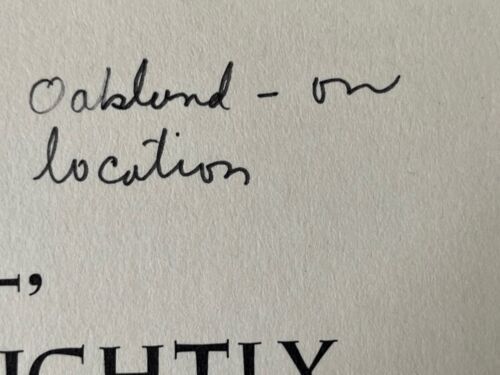 Oakland - on
location
L,
IGHTLY